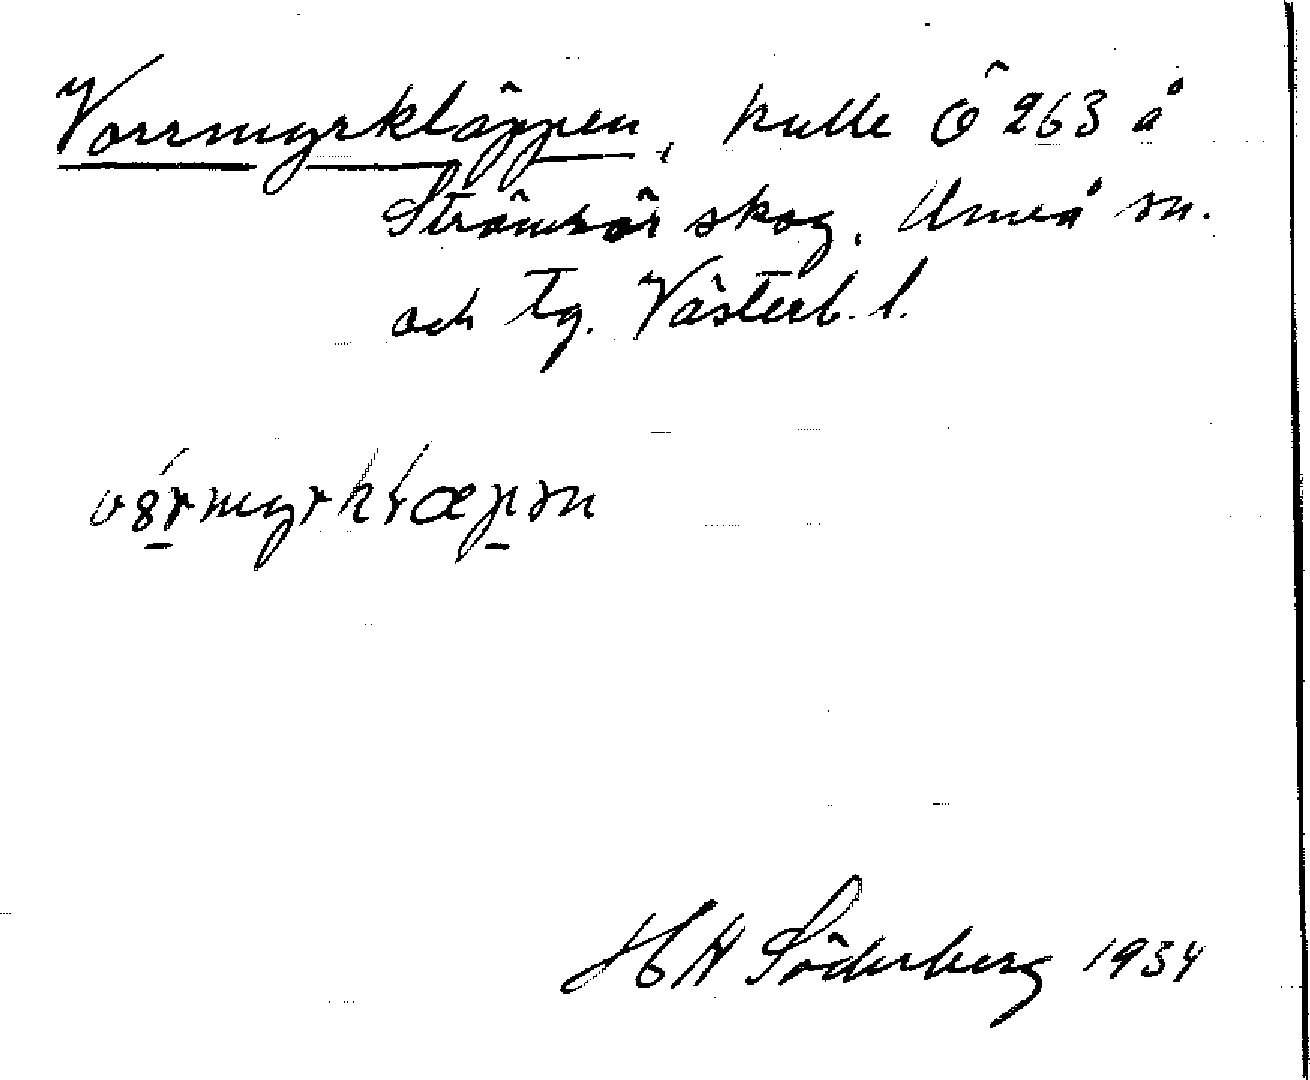 Vorrmyrkläppen, kulle Ö 263 å
Strömbäx skog. Umeå sn.
och tg. Västerb. l.
H H Söderberg 1934